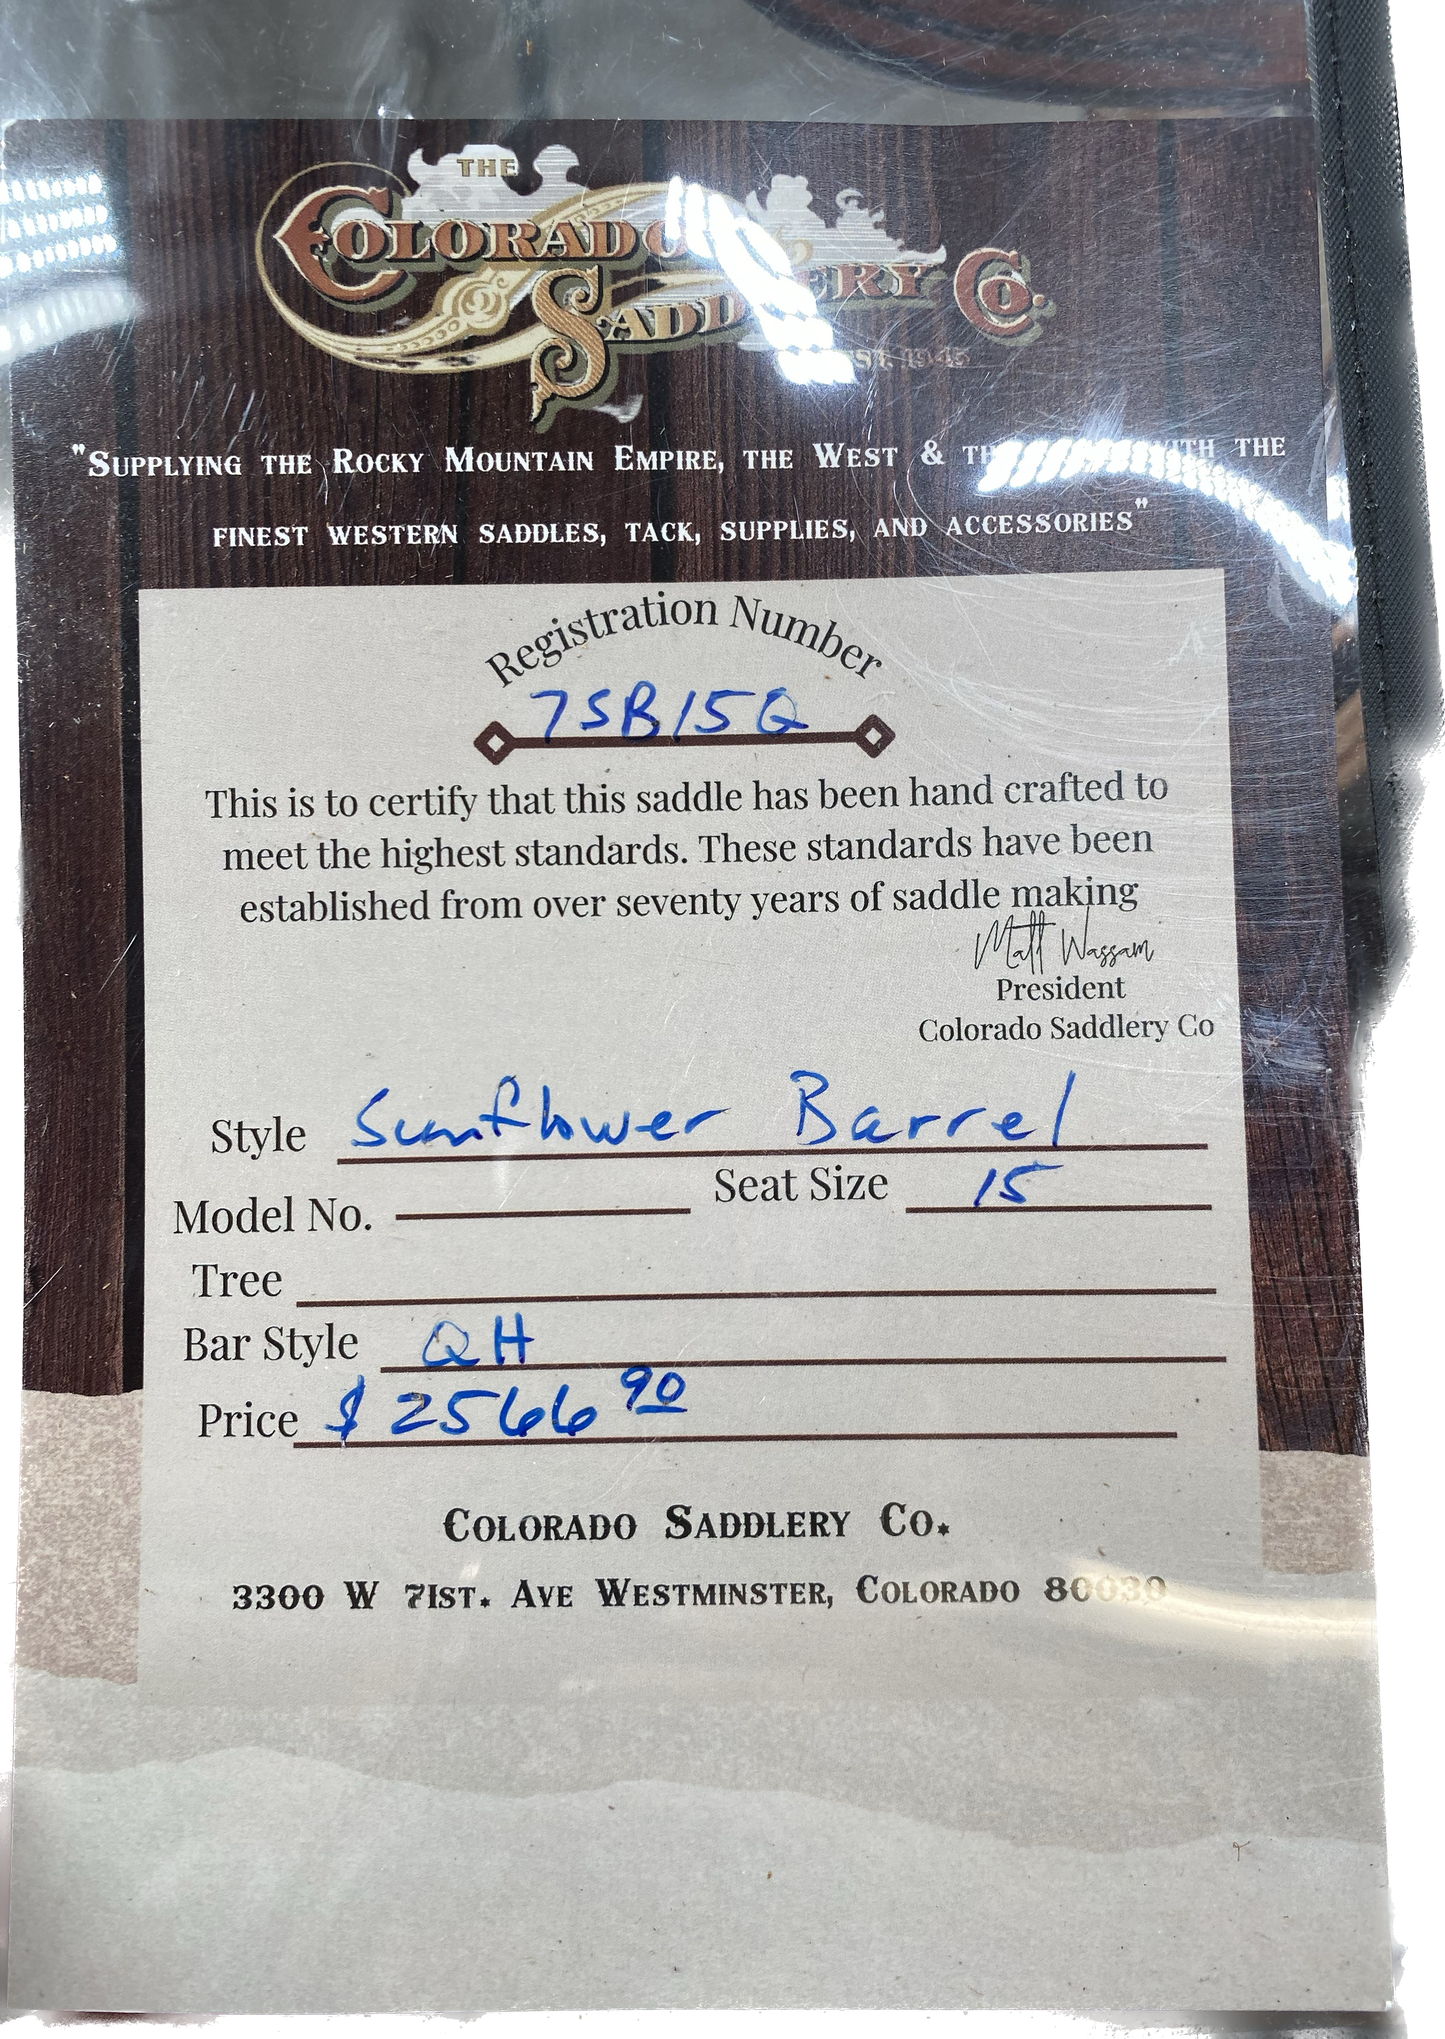 THE
COLORADO
SADDLERY CO.
EST. 1945
"SUPPLYING THE ROCKY MOUNTAIN EMPIRE, THE WEST & WITH THE
FINEST WESTERN SADDLES, TACK, SUPPLIES, AND ACCESSORIES"
Registration Number
7SB15Q
This is to certify that this saddle has been hand crafted to
meet the highest standards. These standards have been
established from over seventy years of saddle making
Matt Wassam
President
Colorado Saddlery Co
Style Sunflower Barrel
Model No. Seat Size 15
Tree
Bar Style QH
Price $2566 90
COLORADO SADDLERY CO.
3300 W 71ST. AVE WESTMINSTER, COLORADO 80030